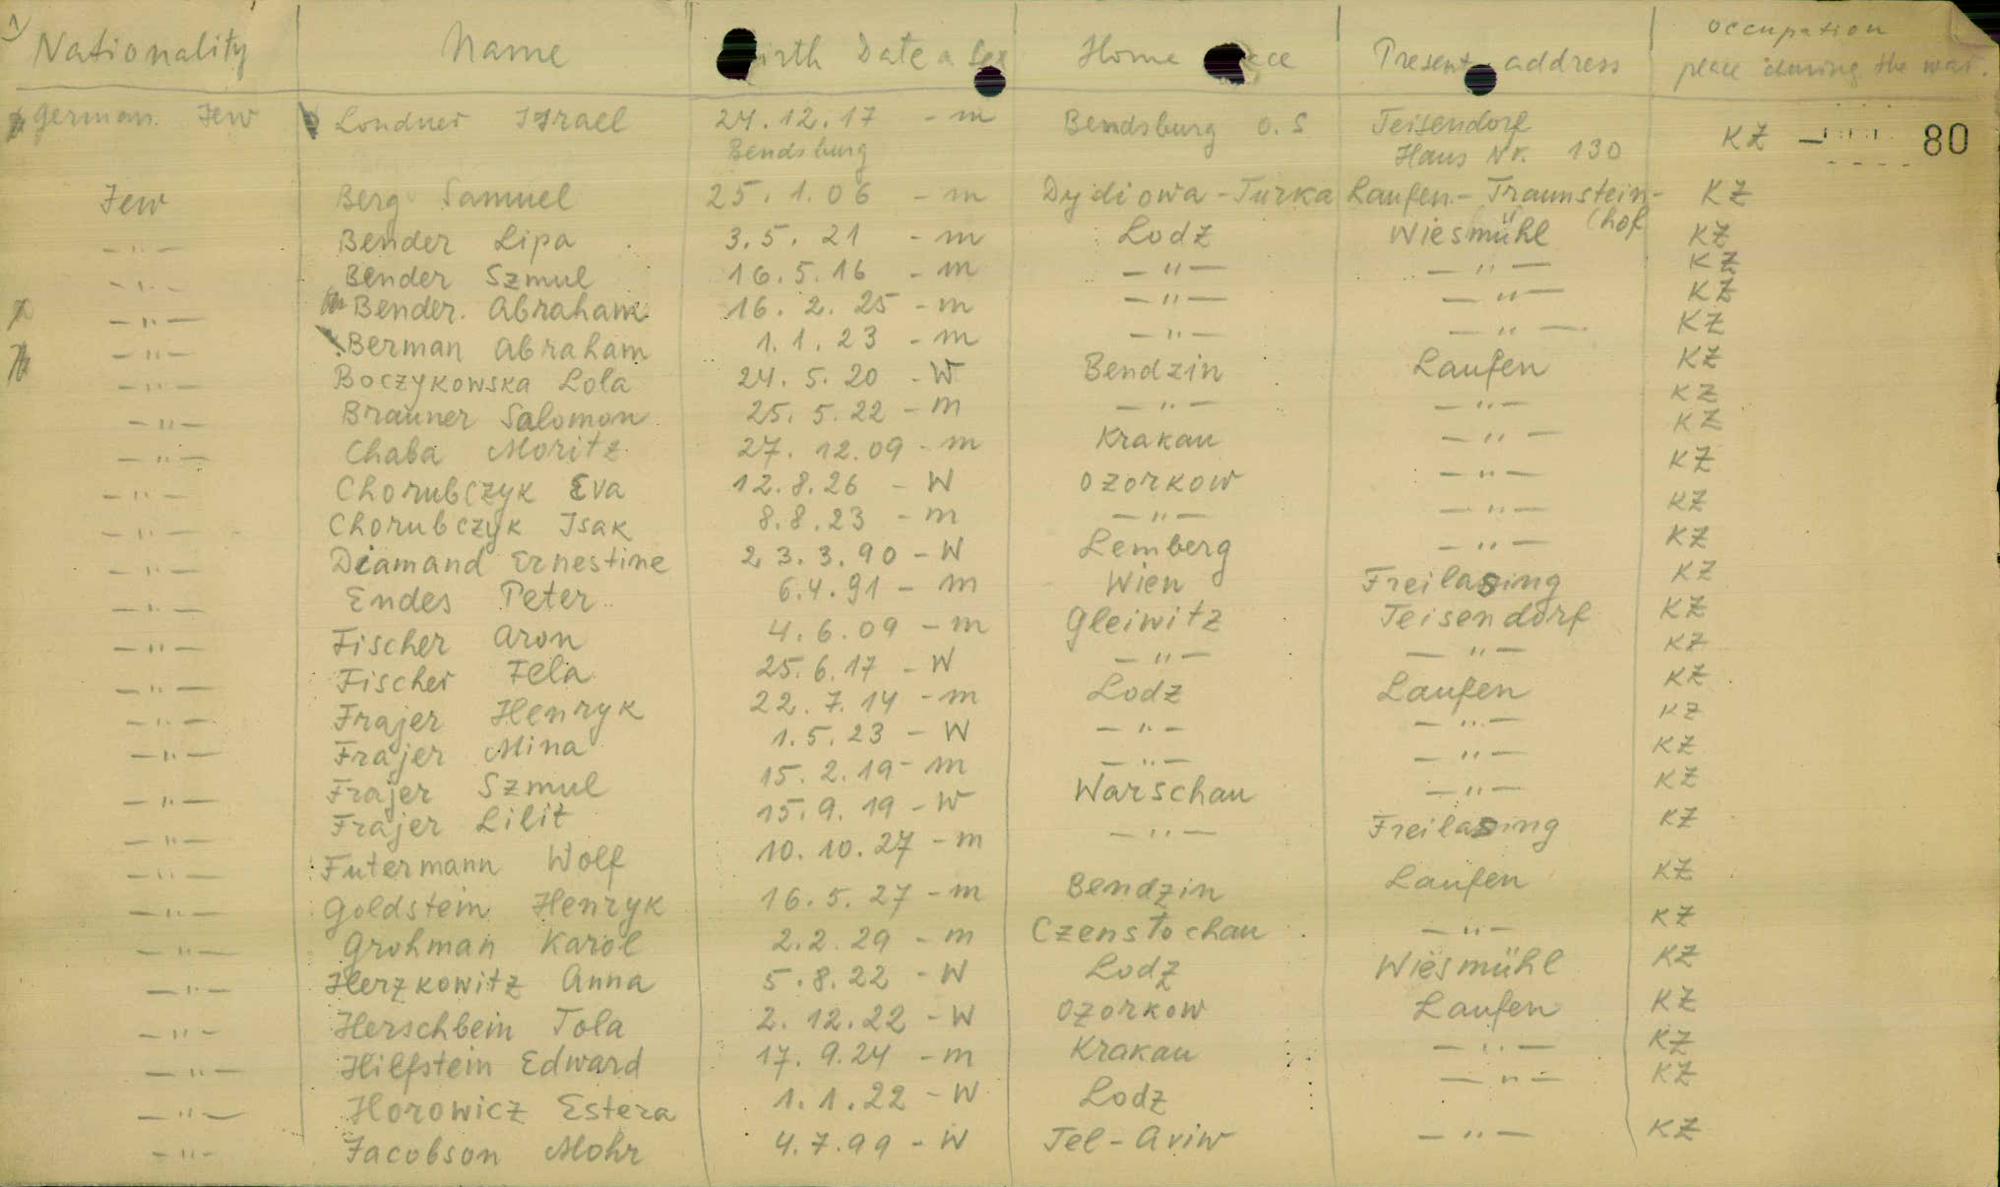 1)
Nationality Name Birth Date a Sex Home place Present address occupation place during the war.
german Jew Londner Israel 24.12.17 - m Bendsburg O.S Teisendorf KZ - 80
Bendsburg Haus Nr. 130
Jew Berg Samuel 25.1.06 - m Dydiowa - Turka Laufen - Traunstein- KZ
(hof
- " - Bender Lipa 3.5.21 - m Lodz Wiesmühl KZ
- " - Bender Szmul 16.5.16 - m - " - - " - KZ
- " - Bender Abraham 16.2.25 - m - " - - " - KZ
- " - Berman Abraham 1.1.23 - m - " - - " - KZ
- " - Boczykowska Lola 24.5.20 - W Bendzin Laufen KZ
- " - Brauner Salomon 25.5.22 - m - " - - " - KZ
- " - Chaba Moritz 27.12.09 - m Krakau - " - KZ
- " - Chorubczyk Eva 12.8.26 - W Ozorkow - " - KZ
- " - Chorubczyk Isak 8.8.23 - m - " - - " - KZ
- " - Diamand Ernestine 23.3.90 - W Lemberg - " - KZ
- " - Endes Peter 6.4.91 - m Wien Freilasing KZ
- " - Fischer Aron 4.6.09 - m Gleiwitz Teisendorf KZ
- " - Fischer Fela 25.6.17 - W - " - - " - KZ
- " - Frajer Henryk 22.7.14 - m Lodz Laufen KZ
- " - Frajer Mina 1.5.23 - W - " - - " - KZ
- " - Frajer Szmul 15.2.19 - m - " - - " - KZ
- " - Frajer Lilit 15.9.19 - W Warschau - " - KZ
- " - Futermann Wolf 10.10.27 - m - " - Freilasing KZ
- " - Goldstein Henryk 16.5.27 - m Bendzin Laufen KZ
- " - Grohman Karol 2.2.29 - m Czenstochau - " - KZ
- " - Herzkowitz Anna 5.8.22 - W Lodz Wiesmühl KZ
- " - Herschbein Tola 2.12.22 - W Ozorkow Laufen KZ
- " - Hilfstein Edward 17.9.24 - m Krakau - " - KZ
- " - Horowicz Estera 1.1.22 - W Lodz - " - KZ
- " - Jacobson Mohr 4.7.99 - W Tel-Aviw - " - KZ